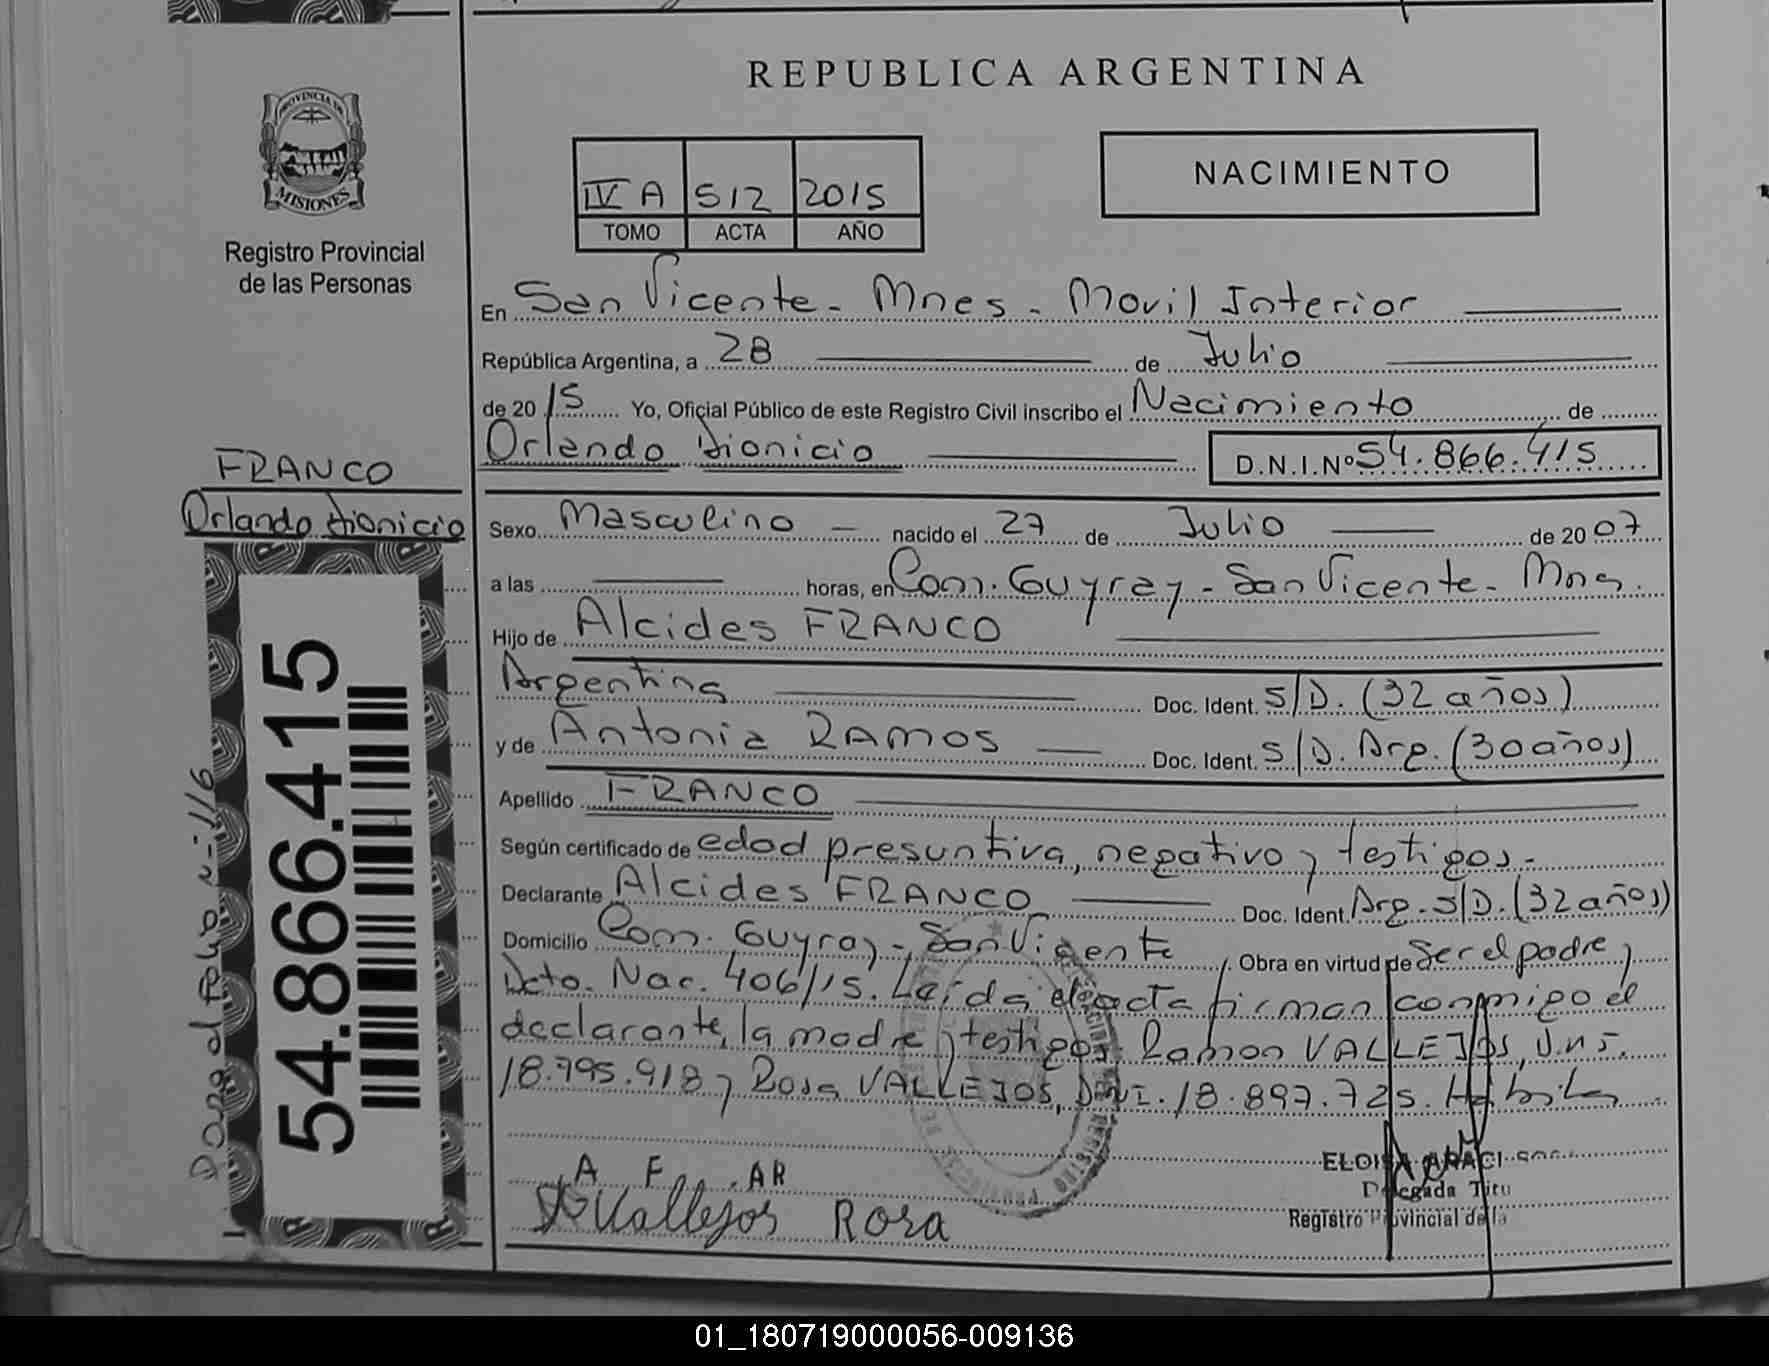 REPUBLICA ARGENTINA
PROVINCIA DE
MISIONES
Registro Provincial
de las Personas
IV A 512 2015
TOMO ACTA AÑO
NACIMIENTO
En San Vicente - Mnes - Movil Interior
República Argentina, a 28 de Julio
de 2015 Yo, Oficial Público de este Registro Civil inscribo el Nacimiento de
Orlando Dionicio D.N.I.Nº 54.866.415
FRANCO
Orlando Dionicio
Sexo Masculino nacido el 27 de Julio de 2007
a las horas, en Com. Guyray - San Vicente - Mnes.
Hijo de Alcides FRANCO
Argentina Doc. Ident. S/D. (32 años)
y de Antonia RAMOS Doc. Ident. S/D. Arg. (30 años)
Apellido FRANCO
Según certificado de edad presuntiva, negativo y testigos.
Declarante Alcides FRANCO Doc. Ident. Arg. S/D. (32 años)
Domicilio Com. Guyray - San Vicente Obra en virtud de Ser el padre y
Dcto. Nac. 406/15. Leída el acta firman conmigo el
declarante, la madre y testigos Ramon VALLEJOS, D.N.I.
18.795.918 y Rosa VALLEJOS, DNI. 18.897.725.
54.866.415
A F . AR
Vallejos Rosa
ELOISA ARACI
Delegada Titu
Registro Provincial de la
01_180719000056-009136